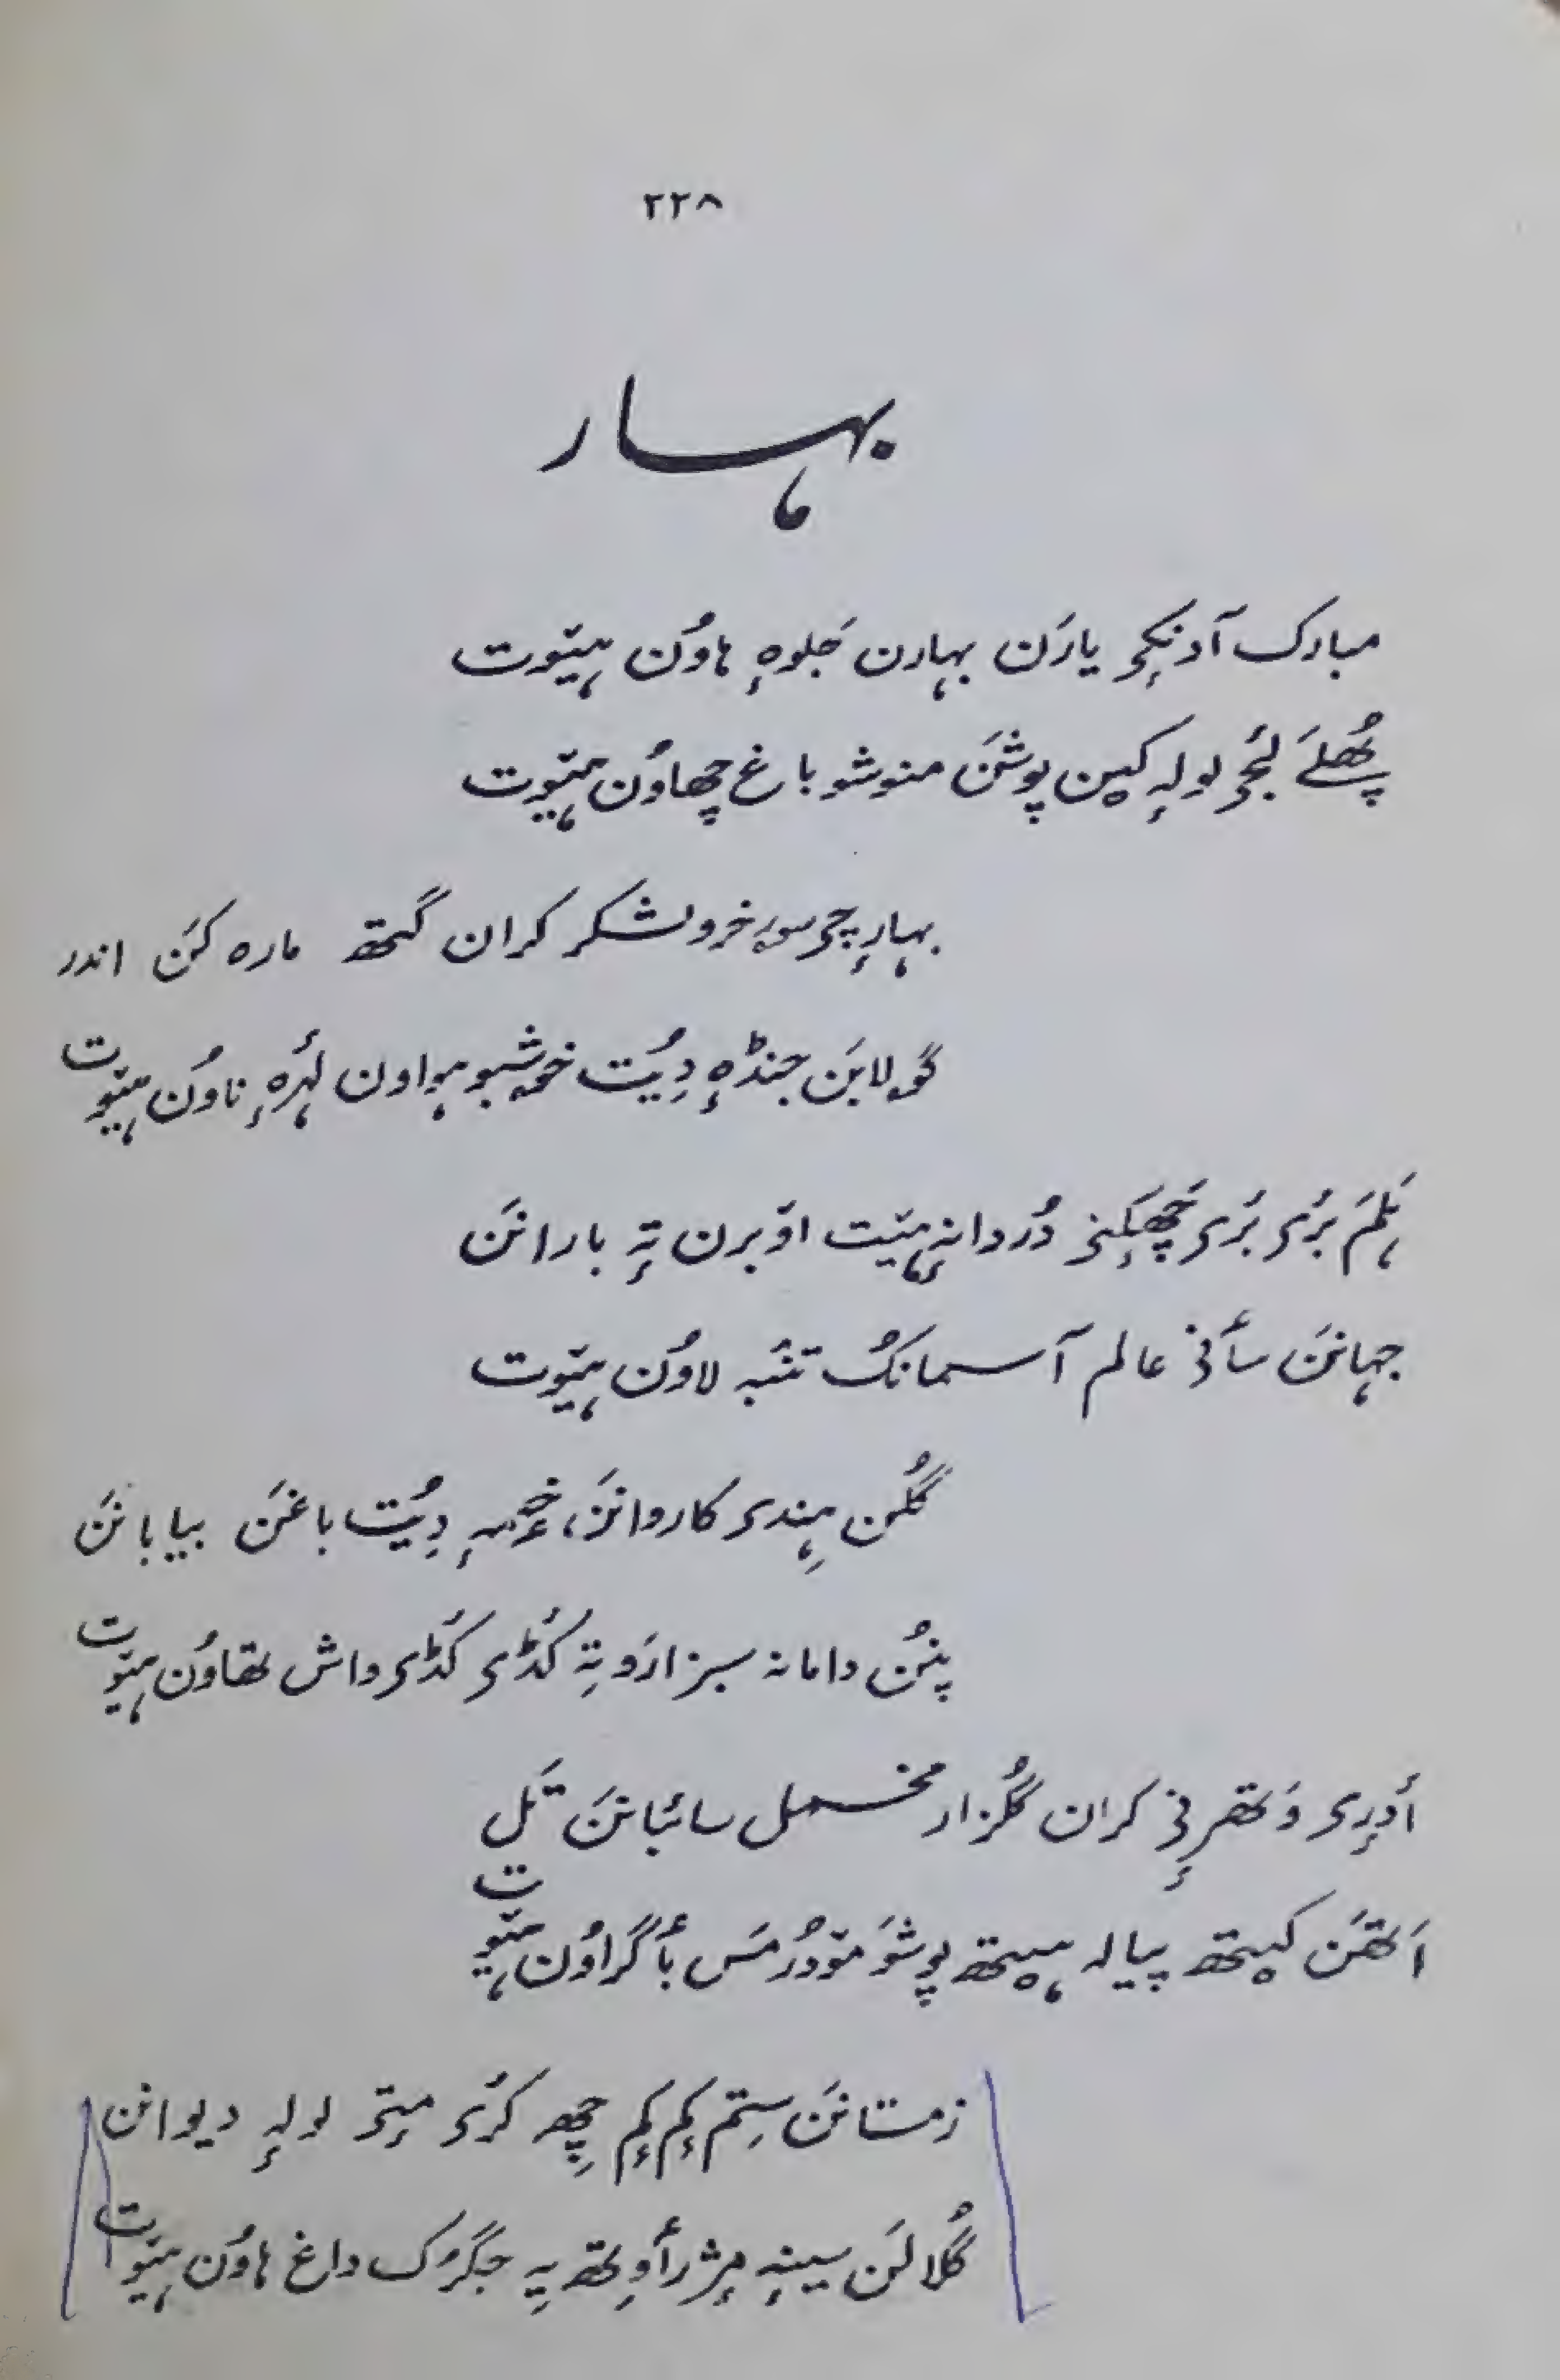 ۲۲۸
بہار
مبارک آونکۍ یارَن بہارن جَلوہٕ ہاوُن ہیوٚت
پھُلَے لٔجۍ لولہٕ کین پوشَن منوشو باغ چھاوُن ہیوٚت
بہارٕچۍ خروشکر کران گتھ مارہ کَن اندر
گولابَن جنڈہٕ دِیُت خۄشبو ہواون لہرٕ ناوُن ہیوٚت
ہَلَمَ بٔرۍ بٔرۍ چھَکٕنۍ دُردانہٕ ہیٚت اوٚبرن تہٕ بارانَن
جہانَن سٲنۍ عالم آسمانُک تنبہ لاوُن ہیوٚت
گُلَن ہِندۍ کاروانَن، خٲمہٕ دِیُت باغَن بیابانَن
پنُن دامانہ سبزارَو تہٕ کٔڈۍ کٔڈۍ واش تھاوُن ہیوٚت
أدرۍ وَتھرٕنۍ کران گُلزار مخمل سائبانَن تَل
اَتھَن کیتھ پیالہ ہیتھ پوشَو موٚدُر مَس بٲگراوُن ہیوٚت
زمستانَن سِتم کٔم کٔم چھِ کرٔۍ مٕتۍ لولہٕ دیوانن
گُلالَن سینہٕ مٕژرٲوِتھ یہِ جگرُک داغ ہاوُن ہیوٚت